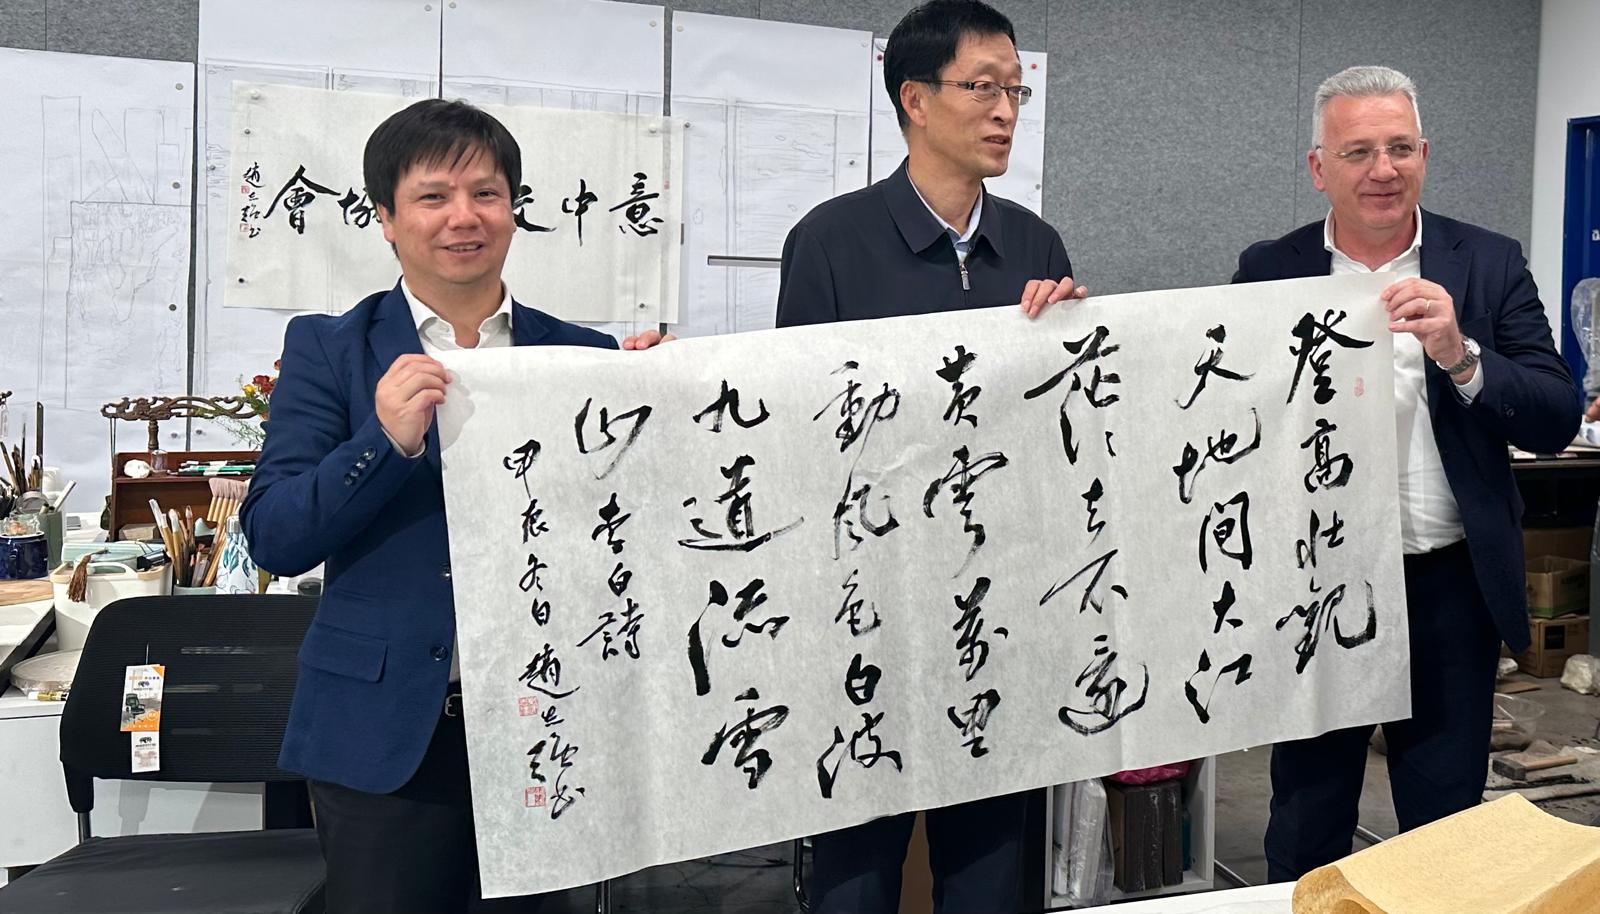 意中協會
登高壯觀
天地間大江
茫茫去不還
黄雲萬里
動風色白波
九道流雪
山 李白詩
甲辰冬日 趙